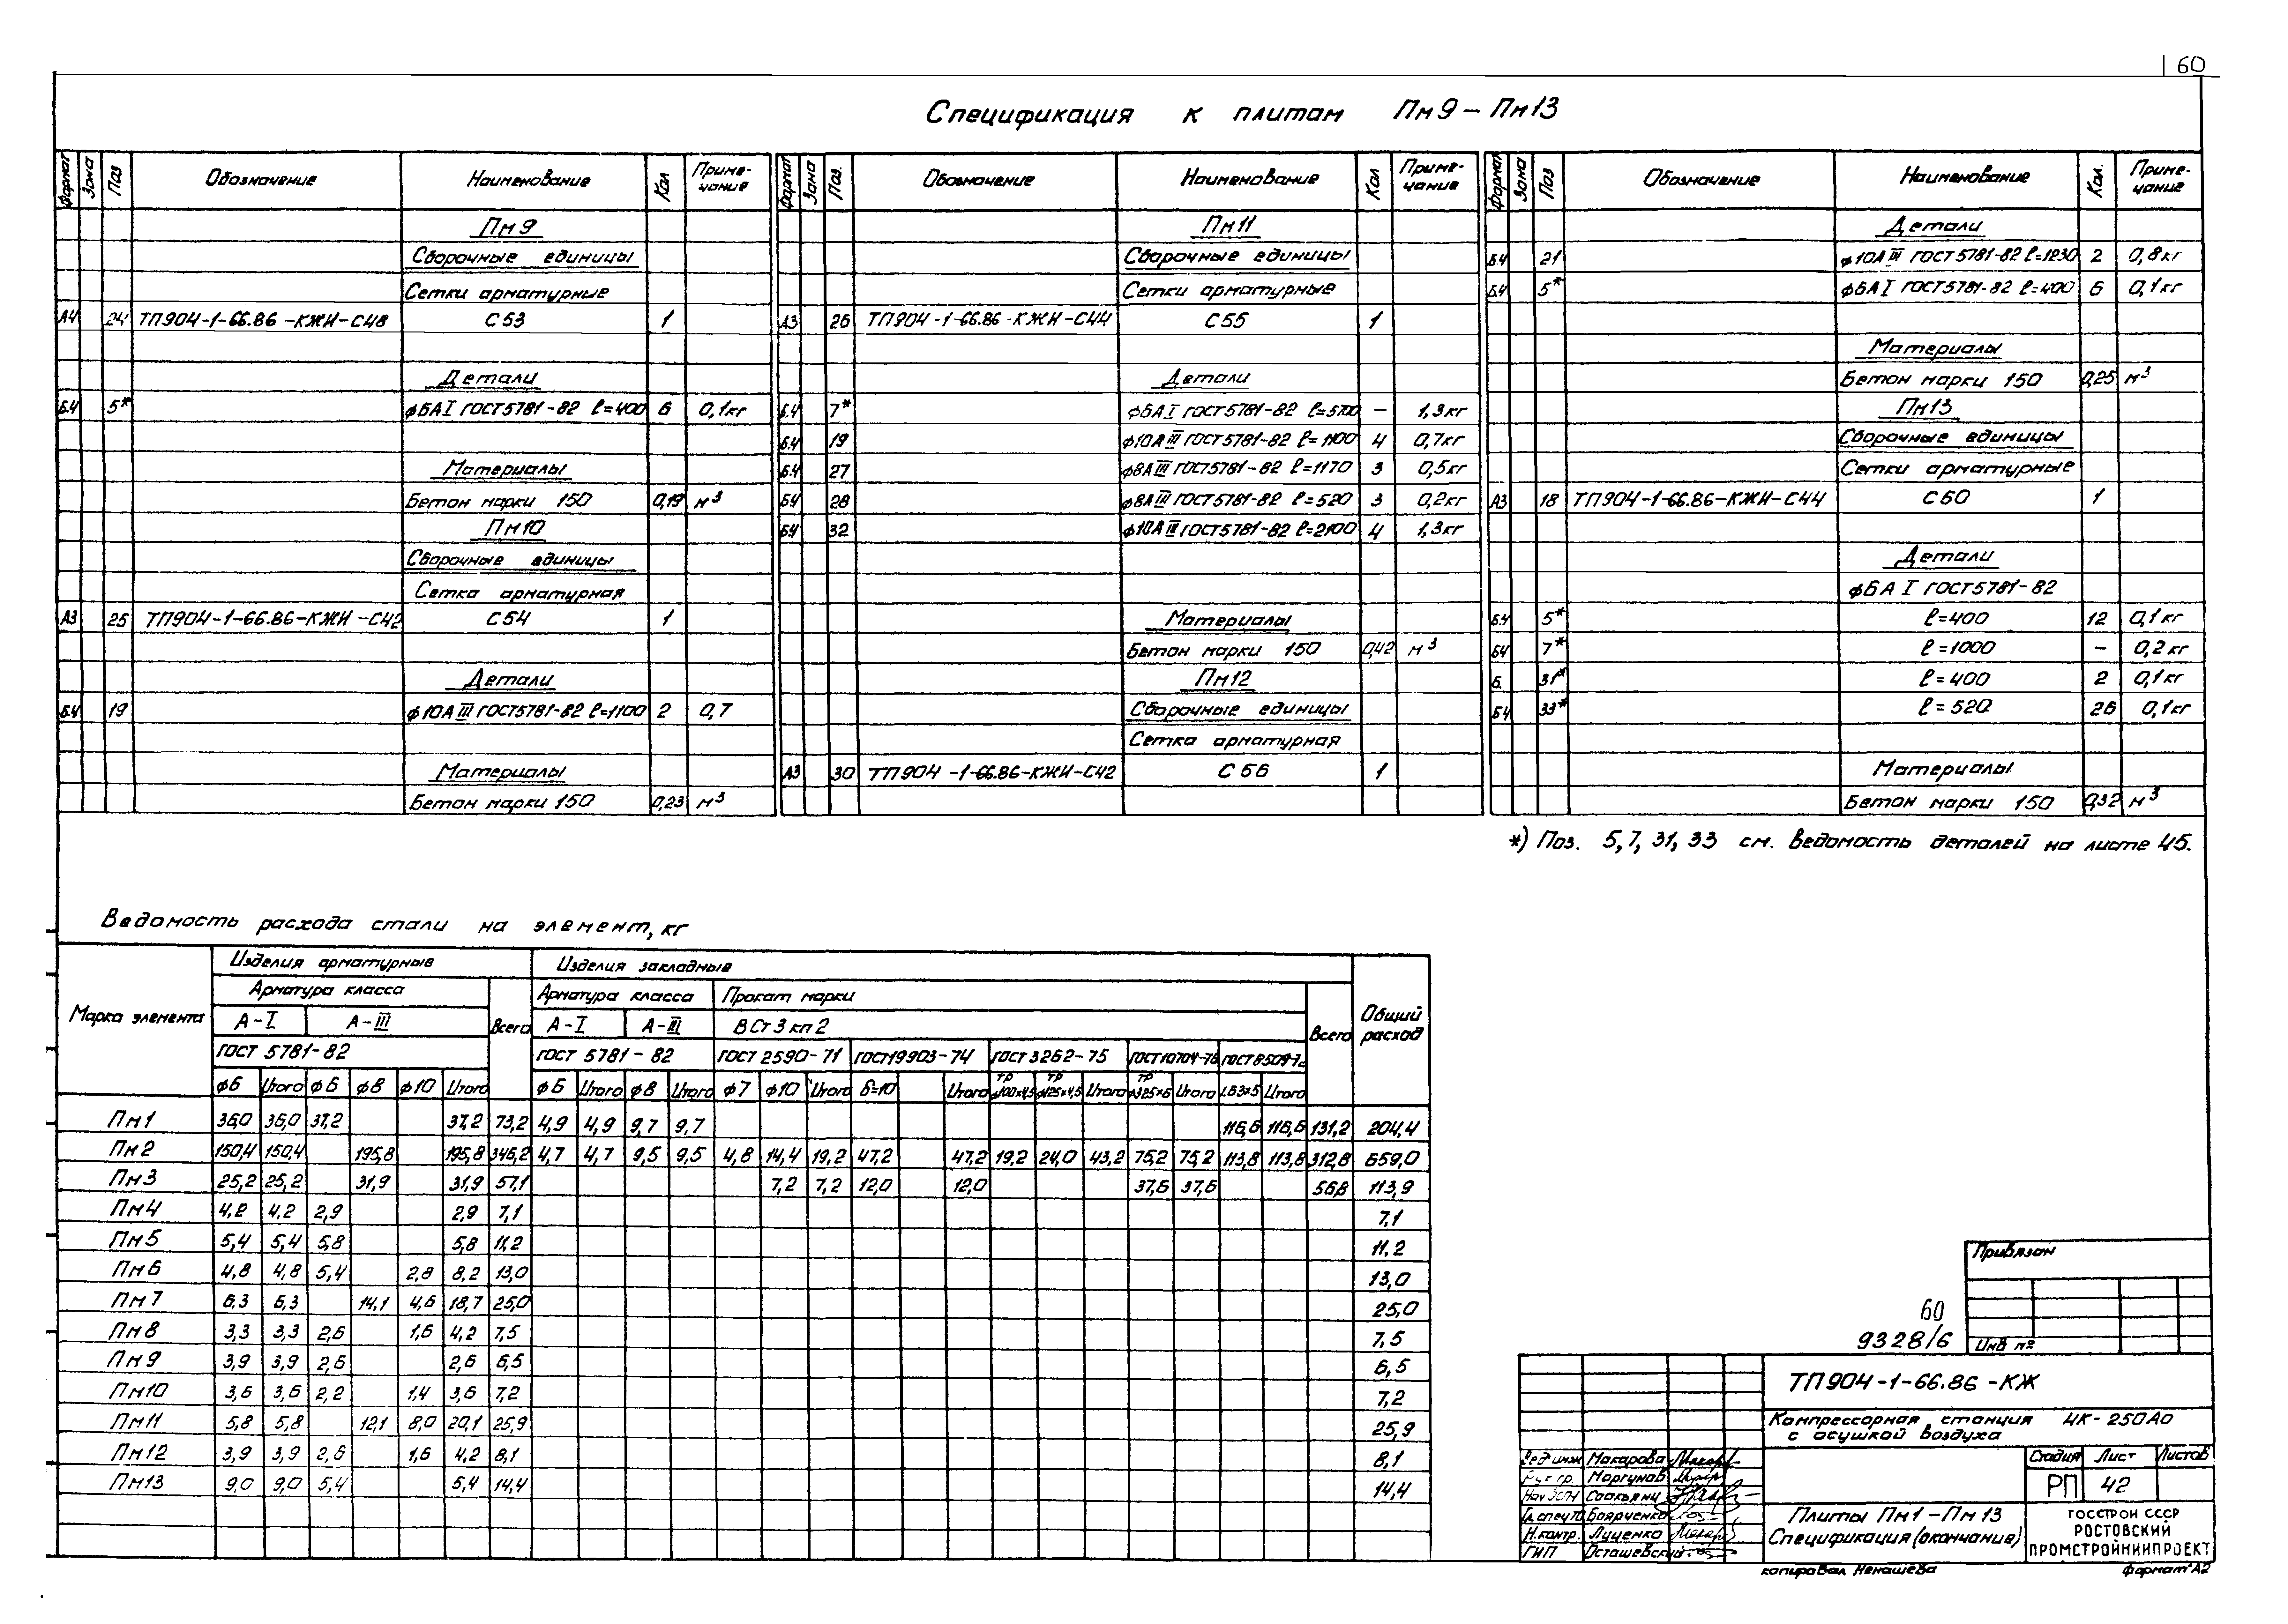 60
Спецификация к плитам Пм9 – Пм13
Формат Зона Поз Обозначение Наименование Кол Примечание
Пм9
Сборочные единицы
Сетки арматурные
А4 24 ТП904-1-66.86-КЖИ-С48 С53 1
Детали
Б4 5* ф6АI ГОСТ5781-82 ℓ=400 6 0,1кг
Материалы
Бетон марки 150 0,19 м³
Пм10
Сборочные единицы
Сетка арматурная
А3 25 ТП904-1-66.86-КЖИ-С42 С54 1
Детали
Б4 19 ф10АIII ГОСТ5781-82 ℓ=1100 2 0,7
Материалы
Бетон марки 150 0,23 м³
Формат Зона Поз. Обозначение Наименование Кол Примечание
Пм11
Сборочные единицы
Сетки арматурные
А3 26 ТП904-1-66.86-КЖИ-С44 С55 1
Детали
Б4 7* ф6АI ГОСТ5781-82 ℓ=5700 – 1,3кг
Б4 19 ф10АIII ГОСТ5781-82 ℓ=1100 4 0,7кг
Б4 27 ф8АIII ГОСТ5781-82 ℓ=1170 3 0,5кг
Б4 28 ф8АIII ГОСТ5781-82 ℓ=520 3 0,2кг
Б4 32 ф10АIII ГОСТ5781-82 ℓ=2100 4 1,3кг
Материалы
Бетон марки 150 0,42 м³
Пм12
Сборочные единицы
Сетка арматурная
А3 30 ТП904-1-66.86-КЖИ-С42 С56 1
Формат Зона Поз Обозначение Наименование Кол. Примечание
Детали
Б4 21 ф10АIII ГОСТ5781-82 ℓ=1230 2 0,8кг
Б4 5* ф6АI ГОСТ5781-82 ℓ=400 6 0,1кг
Материалы
Бетон марки 150 0,25 м³
Пм13
Сборочные единицы
Сетки арматурные
А3 18 ТП904-1-66.86-КЖИ-С44 С60 1
Детали
ф6АI ГОСТ5781-82
Б4 5* ℓ=400 12 0,1кг
Б4 7* ℓ=1000 – 0,2кг
Б. 31* ℓ=400 2 0,1кг
Б4 33* ℓ=520 26 0,1кг
Материалы
Бетон марки 150 0,32 м³
*) Поз. 5,7,31,33 см. ведомость деталей на листе 45.
Ведомость расхода стали на элемент, кг
Марка элемента Изделия арматурные Изделия закладные Общий расход
Арматура класса Всего Арматура класса Прокат марки Всего
А-I А-III А-I А-III ВСт3кп2
ГОСТ 5781-82 ГОСТ 5781-82 ГОСТ 2590-71 ГОСТ19903-74 ГОСТ 3262-75 ГОСТ10704-76 ГОСТ8509-72
ф6 Итого ф6 ф8 ф10 Итого ф6 Итого ф8 Итого ф7 ф10 Итого δ=10 Итого ТР ф100×4,5 ТР ф125×4,5 Итого ТР ф325×6 Итого L63×5 Итого
Пм1 36,0 36,0 37,2 37,2 73,2 4,9 4,9 9,7 9,7 116,6 116,6 131,2 204,4
Пм2 150,4 150,4 195,8 195,8 346,2 4,7 4,7 9,5 9,5 4,8 14,4 19,2 47,2 47,2 19,2 24,0 43,2 75,2 75,2 113,8 113,8 312,8 659,0
Пм3 25,2 25,2 31,9 31,9 57,1 7,2 7,2 12,0 12,0 37,6 37,6 56,8 113,9
Пм4 4,2 4,2 2,9 2,9 7,1 7,1
Пм5 5,4 5,4 5,8 5,8 11,2 11,2
Пм6 4,8 4,8 5,4 2,8 8,2 13,0 13,0
Пм7 6,3 6,3 14,1 4,6 18,7 25,0 25,0
Пм8 3,3 3,3 2,6 1,6 4,2 7,5 7,5
Пм9 3,9 3,9 2,6 2,6 6,5 6,5
Пм10 3,6 3,6 2,2 1,4 3,6 7,2 7,2
Пм11 5,8 5,8 12,1 8,0 20,1 25,9 25,9
Пм12 3,9 3,9 2,6 1,6 4,2 8,1 8,1
Пм13 9,0 9,0 5,4 5,4 14,4 14,4
Привязан
Инв №
60
9328/6
ТП904-1-66.86-КЖ
Компрессорная станция ЦК-250АО
с осушкой воздуха
Вед инж Макарова
Рук гр. Моргунов
Нач Саакьянц
Гл.спец Боярченко
Н.контр. Луценко
ГИП Осташевский
Стадия Лист Листов
РП 42
Плиты Пм1 – Пм13
Спецификация (окончание)
ГОССТРОЙ СССР
РОСТОВСКИЙ
ПРОМСТРОЙНИИПРОЕКТ
копировал Ненашева
формат А2